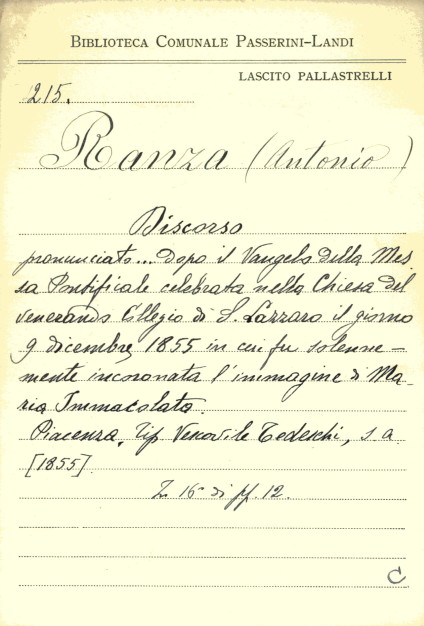 BIBLIOTECA COMUNALE PASSERINI-LANDI
LASCITO PALLASTRELLI
215.
Ranza (Antonio)
Discorso
pronunciato... dopo il Vangelo della Mes
sa Pontificale celebrata nella Chiesa del
venerando Collegio di S. Lazzaro il giorno
9 dicembre 1855 in cui fu solenne-
mente incoronata l'immagine di Ma-
ria Immacolata.
Piacenza, Tip Vescovile Tedeschi, s a
[1855]
in 16° di pp. 12.
C